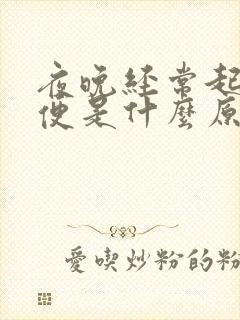 夜晚経常起
便是什麼原
愛喫炒粉的粉